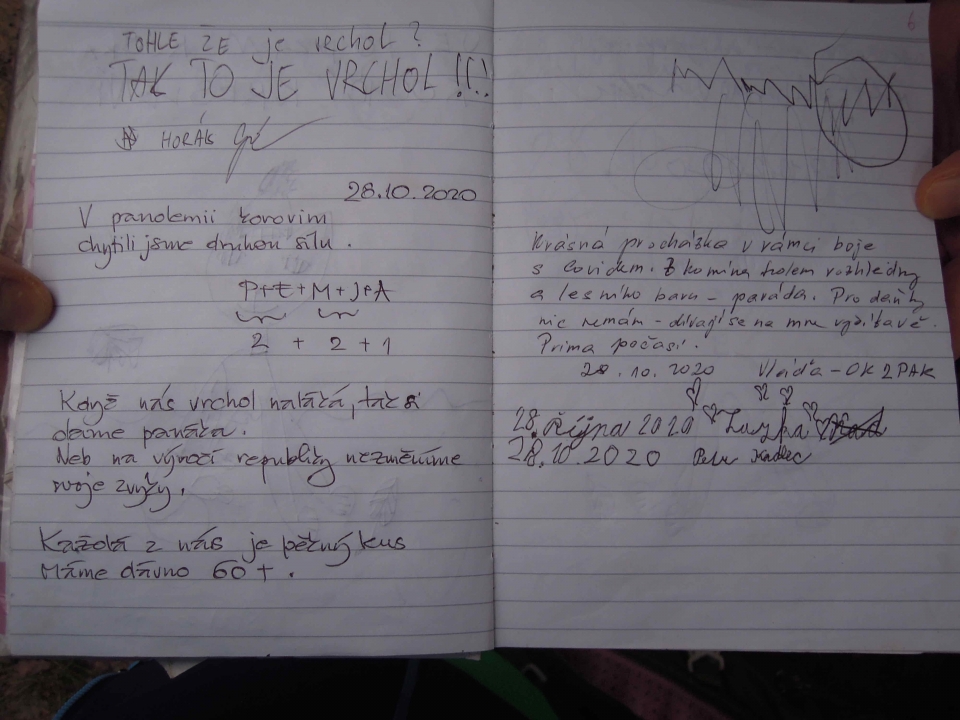 TOHLE ŽE je vrchol?
TAK TO JE VRCHOL!!!
HORÁK
28.10.2020
V pandemii korovim
chytili jsme druhou sílu.
P+t+M+J+A
2 + 2 + 1
Když nás vrchol naláká, tak si
dáme panáka.
Neb na výročí republiky nezměníme
svoje zvyky.
Každá z nás je pěkný kus
Máme dávno 60+.
6
Krásná procházka v rámci boje
s Covidem. Z komína kolem rozhledny
a lesního baru - paráda. Pro
nic nemám - dívají se na mne vyčítavě.
Prima počasí.
28.10.2020 Vláďa - OK2PAK
28. října 2020
28.10.2020 Petr